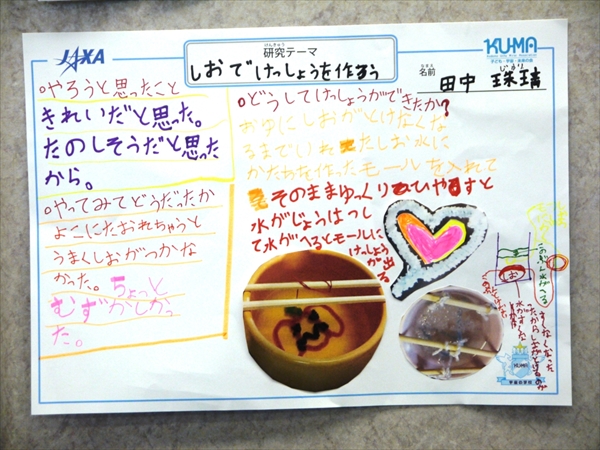 JAXA
けんきゅう
研究テーマ
しおでけっしょうを作ろう
KU-MA
子ども・宇宙・未来の会
なまえ
名前
田中
。やろうと思ったこと
きれいだと思った。
たのしそうだと思った
から。
。やってみてどうだったか
よこにたおれちゃうと
うまくしおがつかな
かった。ちょっと
むずかしかっ
た。
。どうしてけっしょうができたか?
おゆにしおがとけなくな
るまでいれたしお水に
かたちを作ったモールを入れて
そのままゆっくりひやすと
水がじょうはつし
て水がへるとモールに
けっしょうが出る
しお
KUMA
宇宙の学校